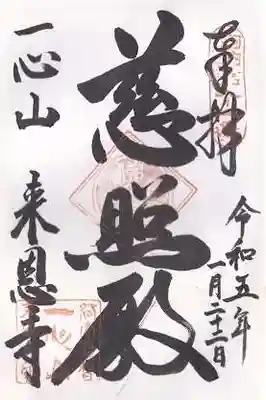 奉拝
令和五年
一月二十二日
慈照殿
一心山 来恩寺